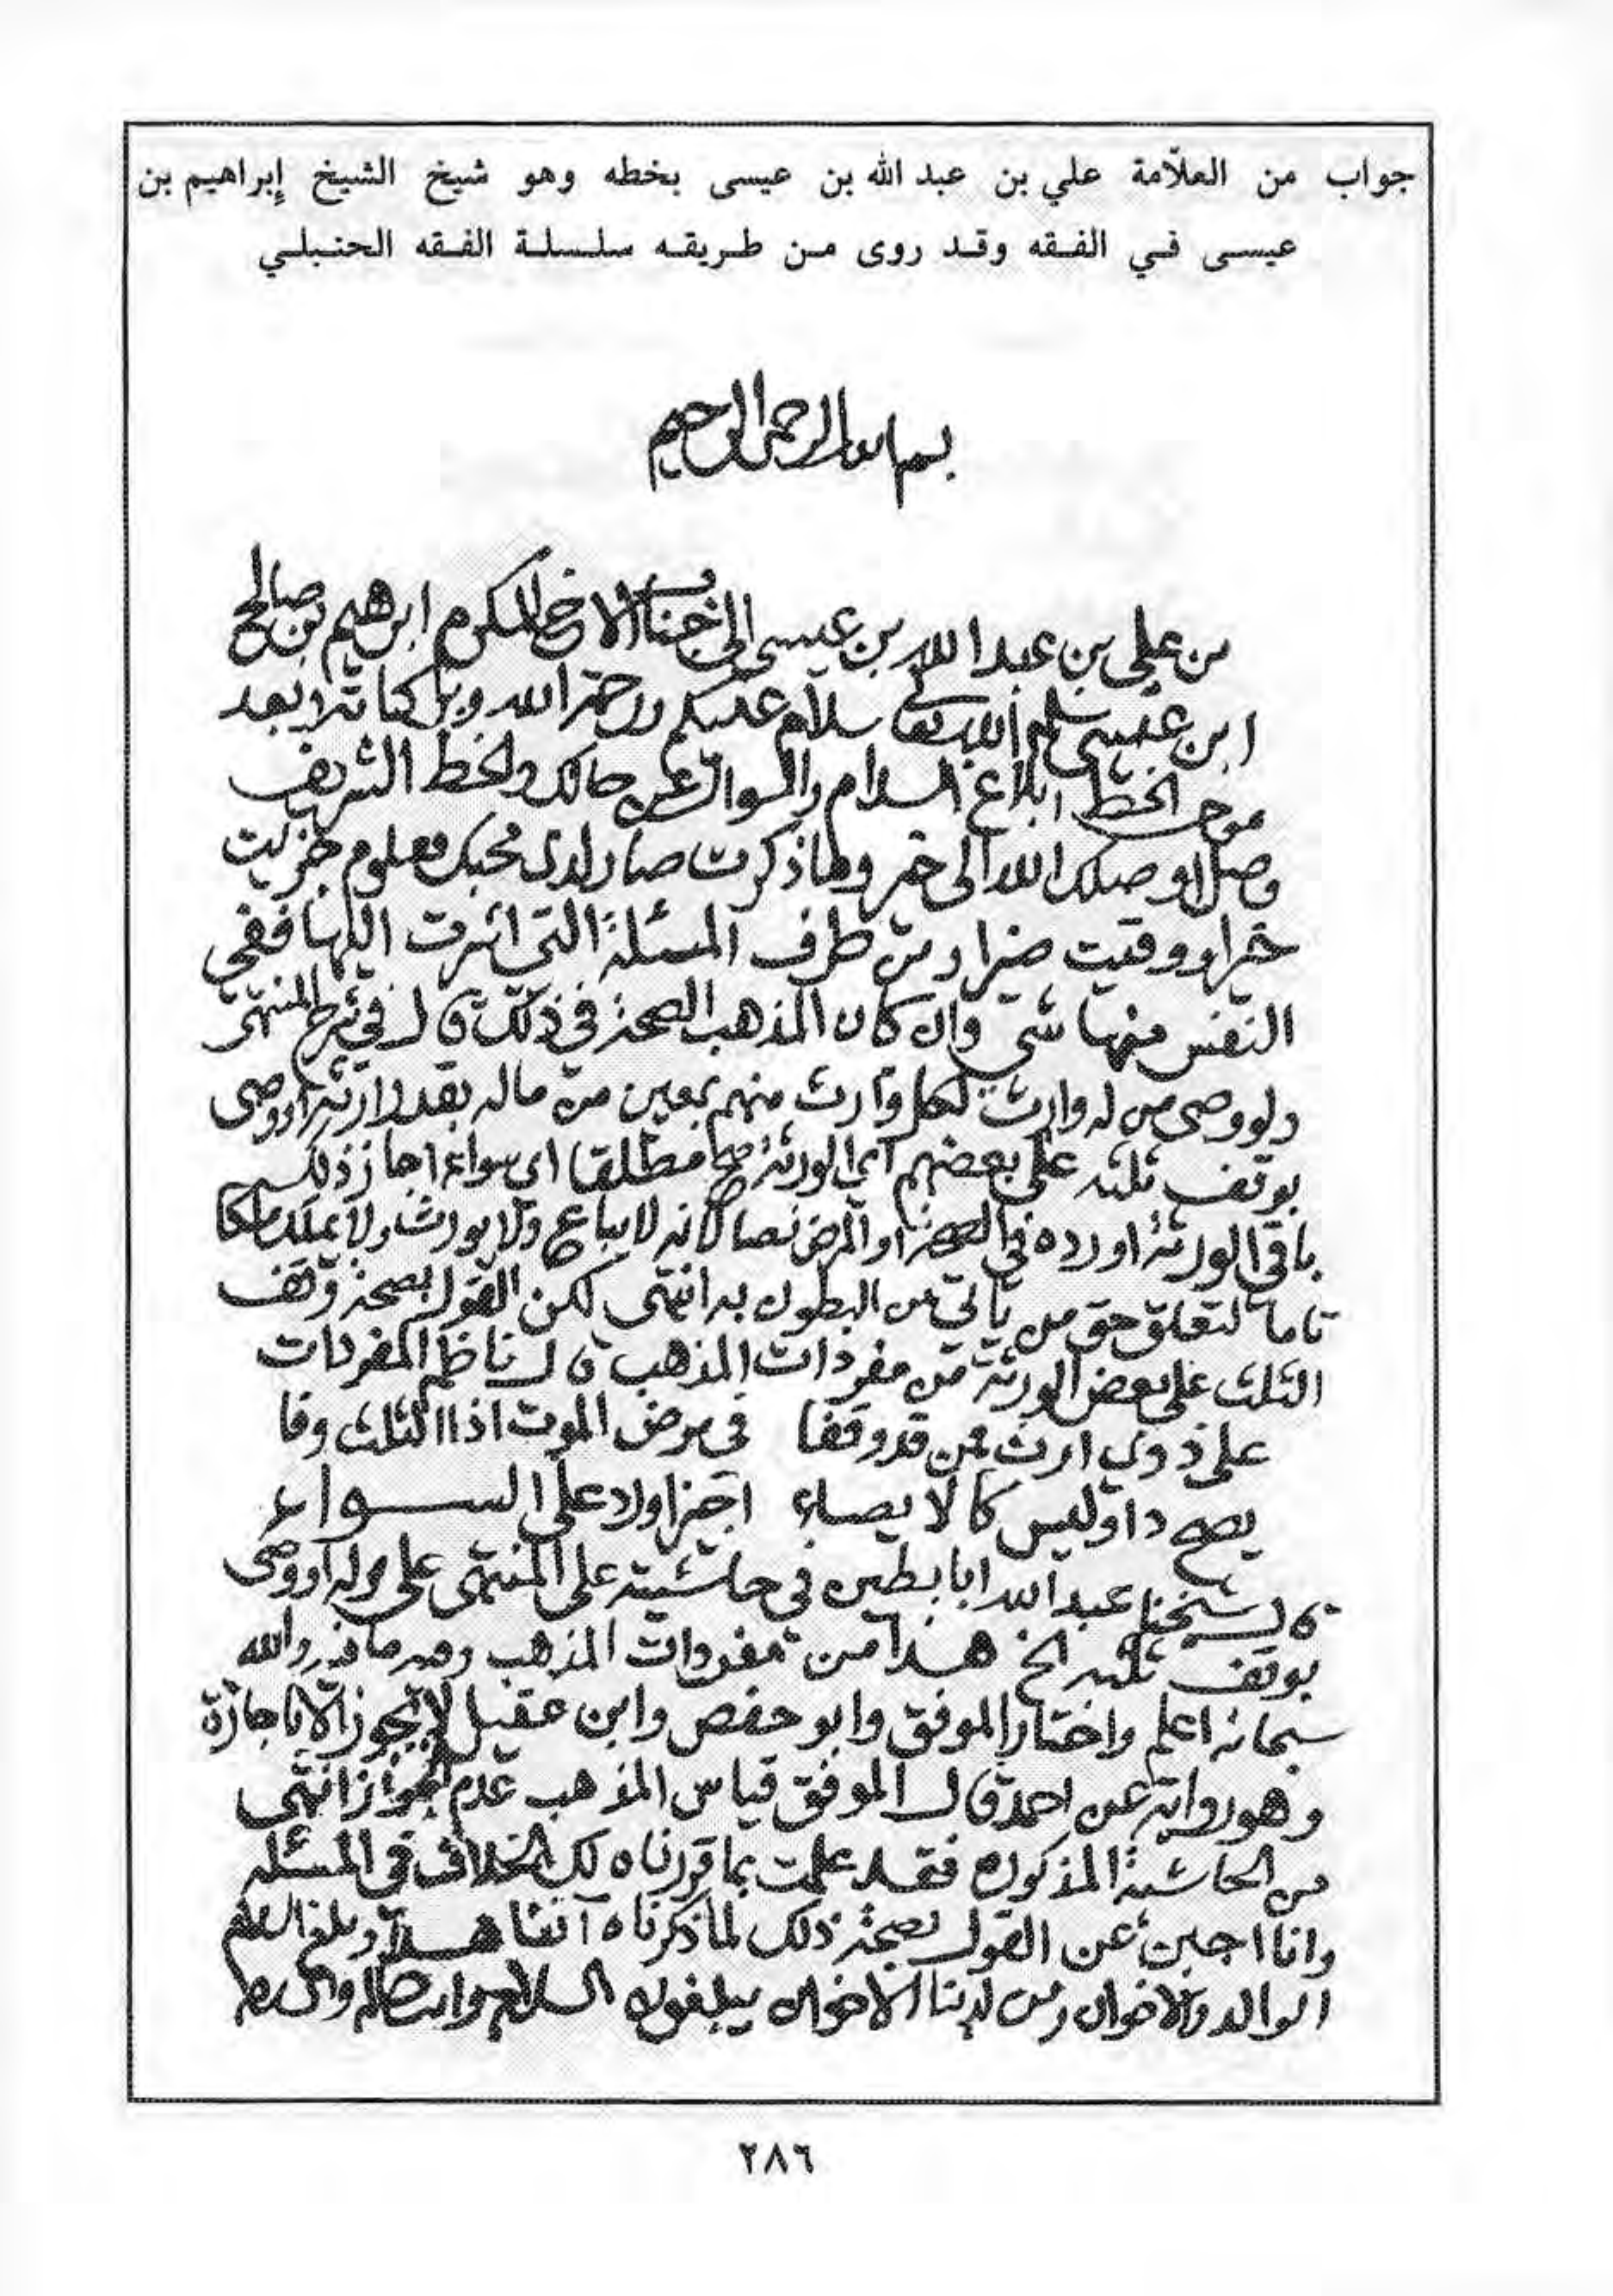 جواب من العلاّمة علي بن عبد الله بن عيسى بخطه وهو شيخ الشيخ إبراهيم بن
عيسى في الفقه وقد روى من طريقه سلسلة الفقه الحنبلي
بسم الله الرحمن الرحيم
من علي بن عبد الله بن عيسى الى جناب الاخ المكرم ابرهيم بن صالح
ابن عيسى سلمه الله تعالى سلام عليكم ورحمة الله وبركاته وبعد
موجب الخط ابلاغ السلام والسوال عن حالك والخط الشريف
وصل اوصلك الله الى خير وما ذكرت صار لدى محبك معلوم جزيت
خيرا ووقيت ضيرا ومن طرف المسئلة التي اشرت اليها ففي
النفس منها شي وان كان المذهب الصحة في ذلك قال في شرح المنتهى
ولو وصى من له وارث لكل وارث منهم بمعين من ماله بقدر ارثه او وصى
بوقف ثلثه على بعضهم اي الورثة صح مطلقا اي سواء اجاز ذلك
باقي الورثة او رده في الصحة او المرض نصا لانه لا يباع ولا يورث ولا يملك ملكا
تاما لتعلق حق من ياتي من البطون به انتهى لكن القول بصحة وقف
الثلث على بعض الورثة من مفردات المذهب قال ناظم المفردات
على ذوي ارث فمن قد وقفا في مرض الموت اذا الثلث وفا
يصح ذا وليس كالايصاء اجيز اولا على السواء
قال شيخنا عبد الله ابا بطين في حاشيته على المنتهى على قوله او وصى
بوقف ثلثه الخ هذا من مفردات المذهب وفيه ما فيه والله
سبحانه اعلم واختار الموفق وابو حفص وابن عقيل لا يجوز الا باجازة
وهو رواية عن احمد قال الموفق قياس المذهب عدم الجواز انتهى
من الحاشية المذكوره فقد علمت بما قررناه لك الخلاف في المسئله
وانا اجبن عن القول بصحة ذلك لما ذكرناه آنفا هذا وبلغ السلام
الوالد والاخوان ومن لدينا الاخوان يبلغون السلام وانت سالم والسلام
٢٨٦